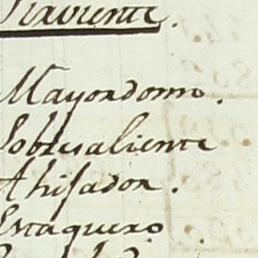 Sirviente.
Mayordomo.
Sobresaliente
Ahijador.
Estaquero